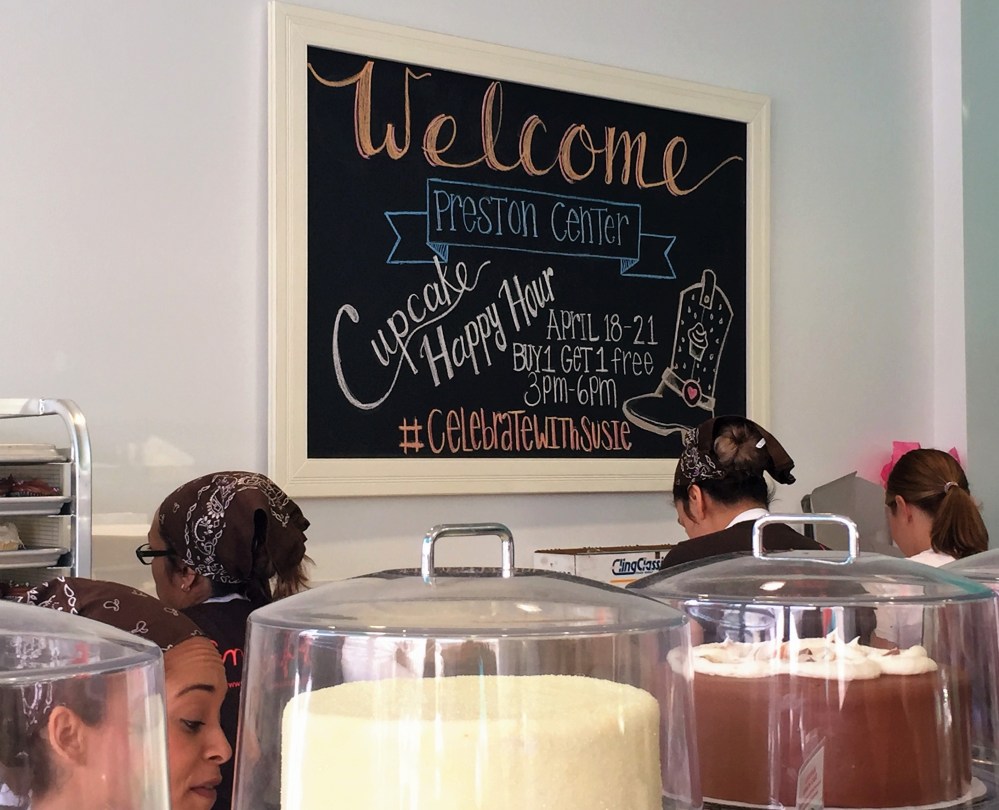 Welcome
Preston Center
Cupcake
Happy Hour
April 18-21
Buy 1 Get 1 free
3pm-6pm
#CelebrateWithSusie
ClingClassi